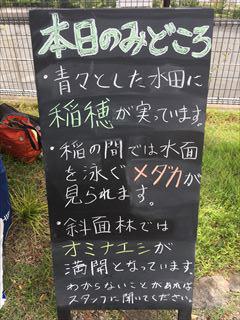 本日のみどころ
・青々とした水田に
稲穂が実っています。
・稲の間では水面
を泳ぐメダカが
見られます。
・斜面林では
オミナエシが
満開となっています。
わからないことがあれば
スタッフに聞いてください。